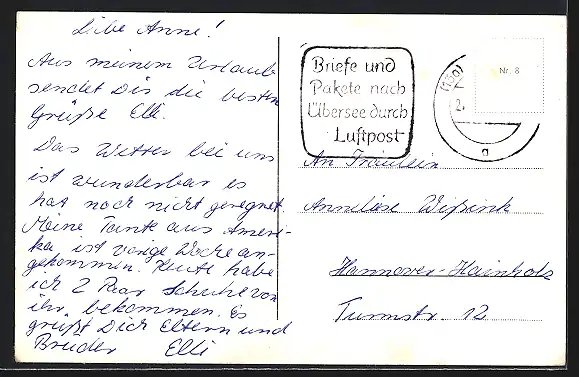 Liebe Anne!
Aus meinem Urlaub
sendet Dir die besten
Grüße Elli.
Das Wetter bei uns
ist wunderbar es
hat noch nicht geregnet.
Meine Tante aus Ameri-
ka ist vorige Woche an-
gekommen. Heute habe
ich 2 Paar Schuhe von
ihr bekommen. Es
grüßt Dich Eltern und
Bruder Elli
Briefe und
Pakete nach
Übersee durch
Luftpost
Nr. 8
a
An Fräulein
Annelise
Hannover-Hainholz
Turmstr 12